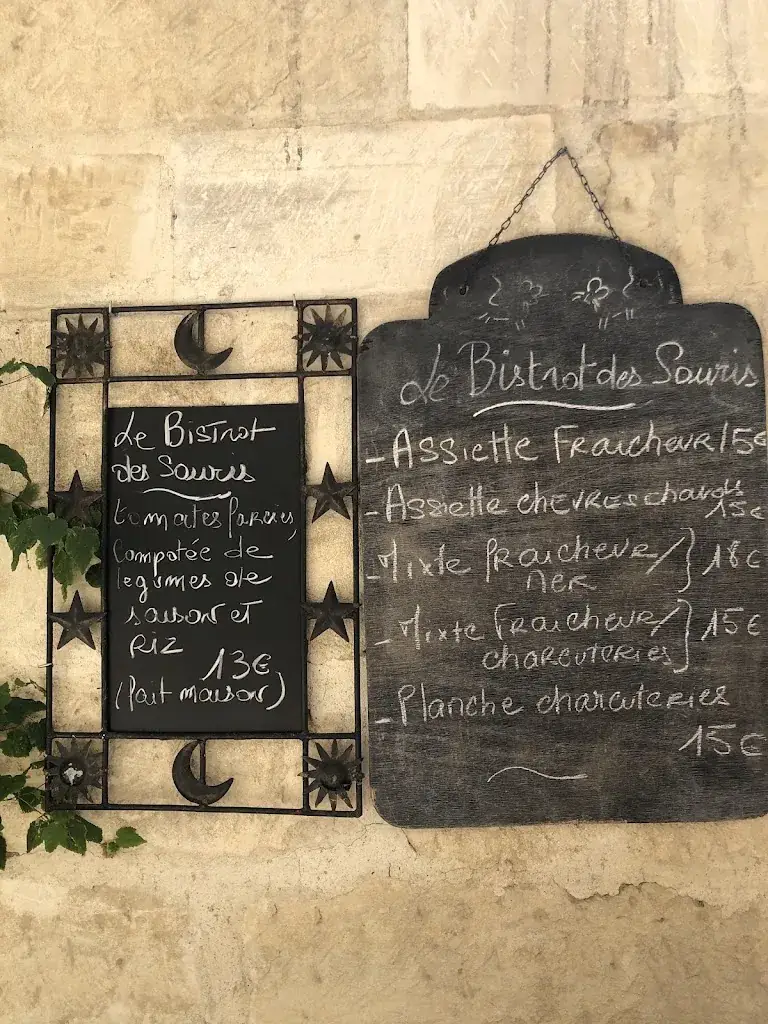 Le Bistrot
des Souris
tomates farcies,
Compotée de
legumes de
saison et
RIZ
13€
(fait maison)
Le Bistrot des Souris
- Assiette Fraicheur 15€
- Assiette chevres chauds
15€
- Mixte fraicheur/ } 18€
MER
- Mixte Fraicheur/ } 15€
charcuteries
- Planche charcuteries
15€